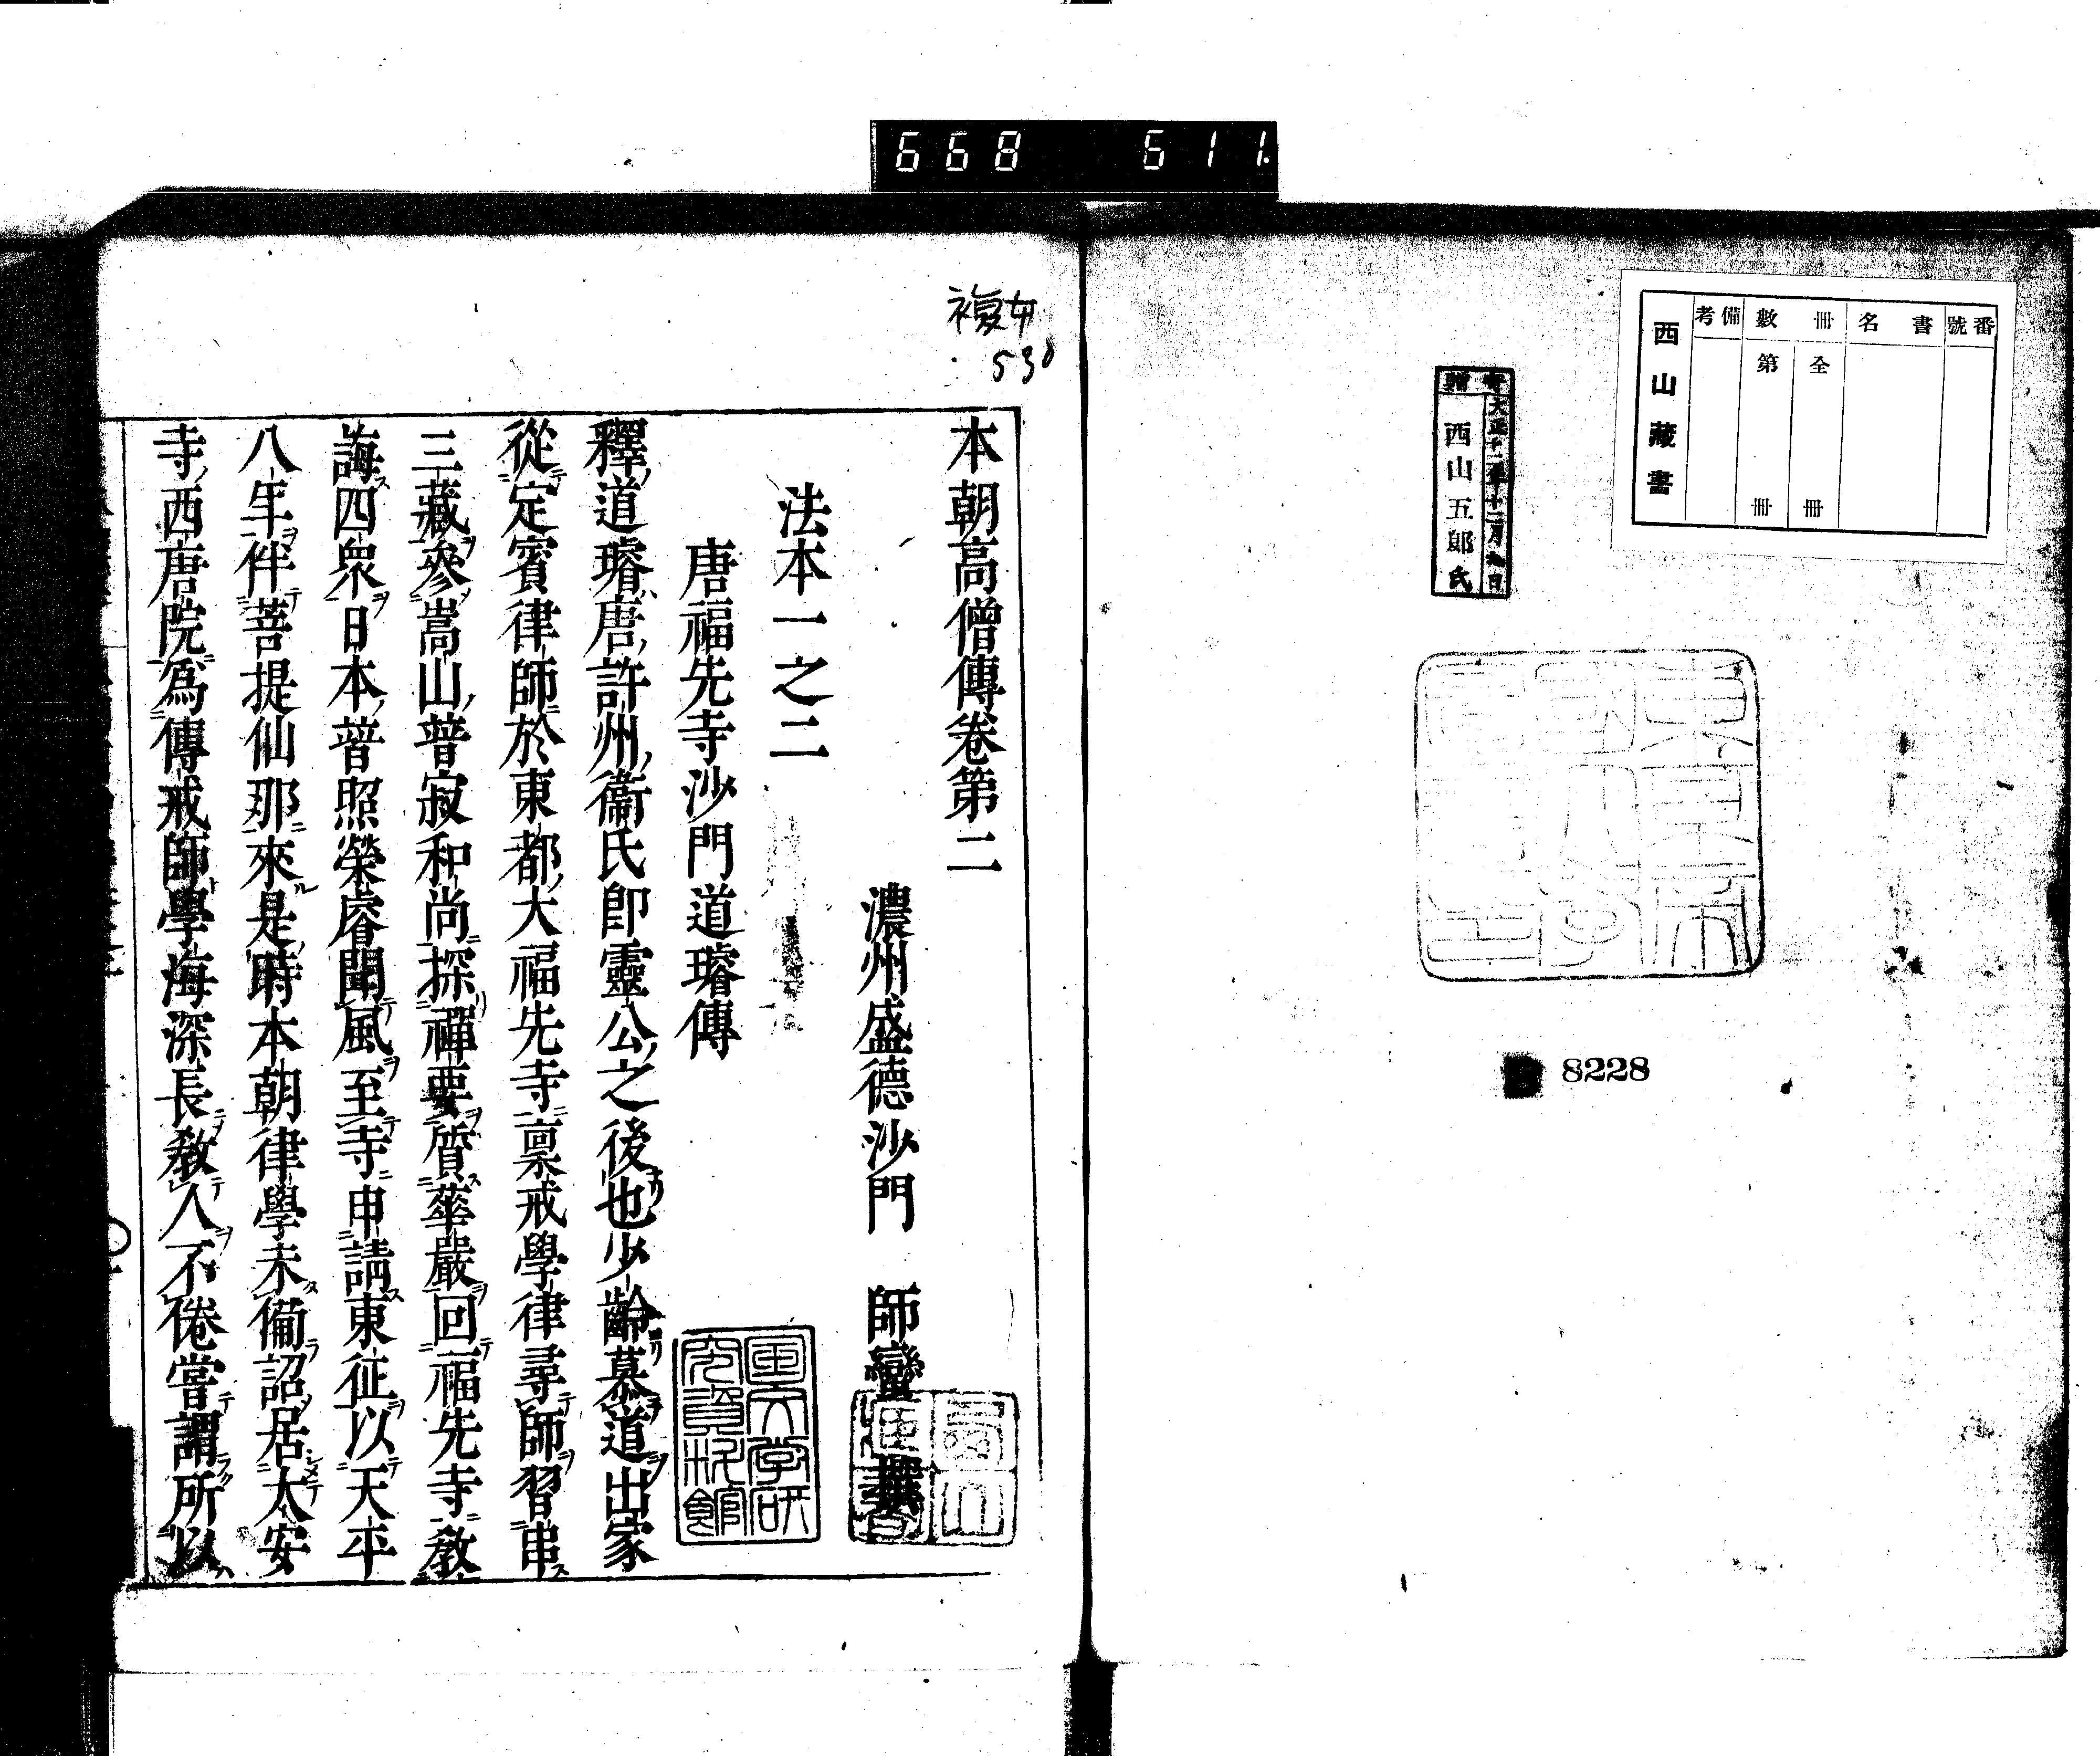 668 611.
番號
書名
冊數
全 冊
第 冊
備考
西山藏書
寄贈
大正十二年十二月 日
西山五郎氏
8228
複女
530
本朝高僧傳卷第二
濃州盛德沙門 師蠻 撰
法本一之二
唐福先寺沙門道璿傳
釋道璿唐許州衞氏卽靈公之後也少齡慕道出家
從定賓律師於東都大福先寺稟戒學律尋師習串
三藏參嵩山普寂和尚探禪要質華嚴回福先寺教
誨四衆日本普照榮睿聞風至寺申請東征以天平
八年伴菩提仙那來是時本朝律學未備詔居大安
寺西唐院爲傳戒師學海深長教人不倦嘗謂所以
国文学研究資料館